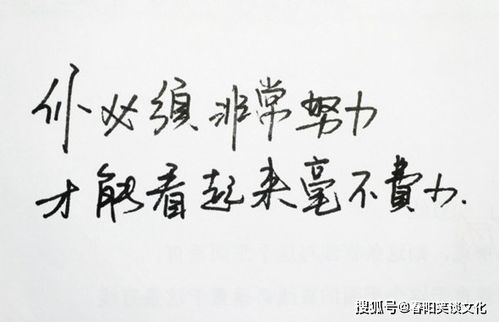 你必須非常努力
才能看起来毫不費力.
搜狐号@春阳笑谈文化